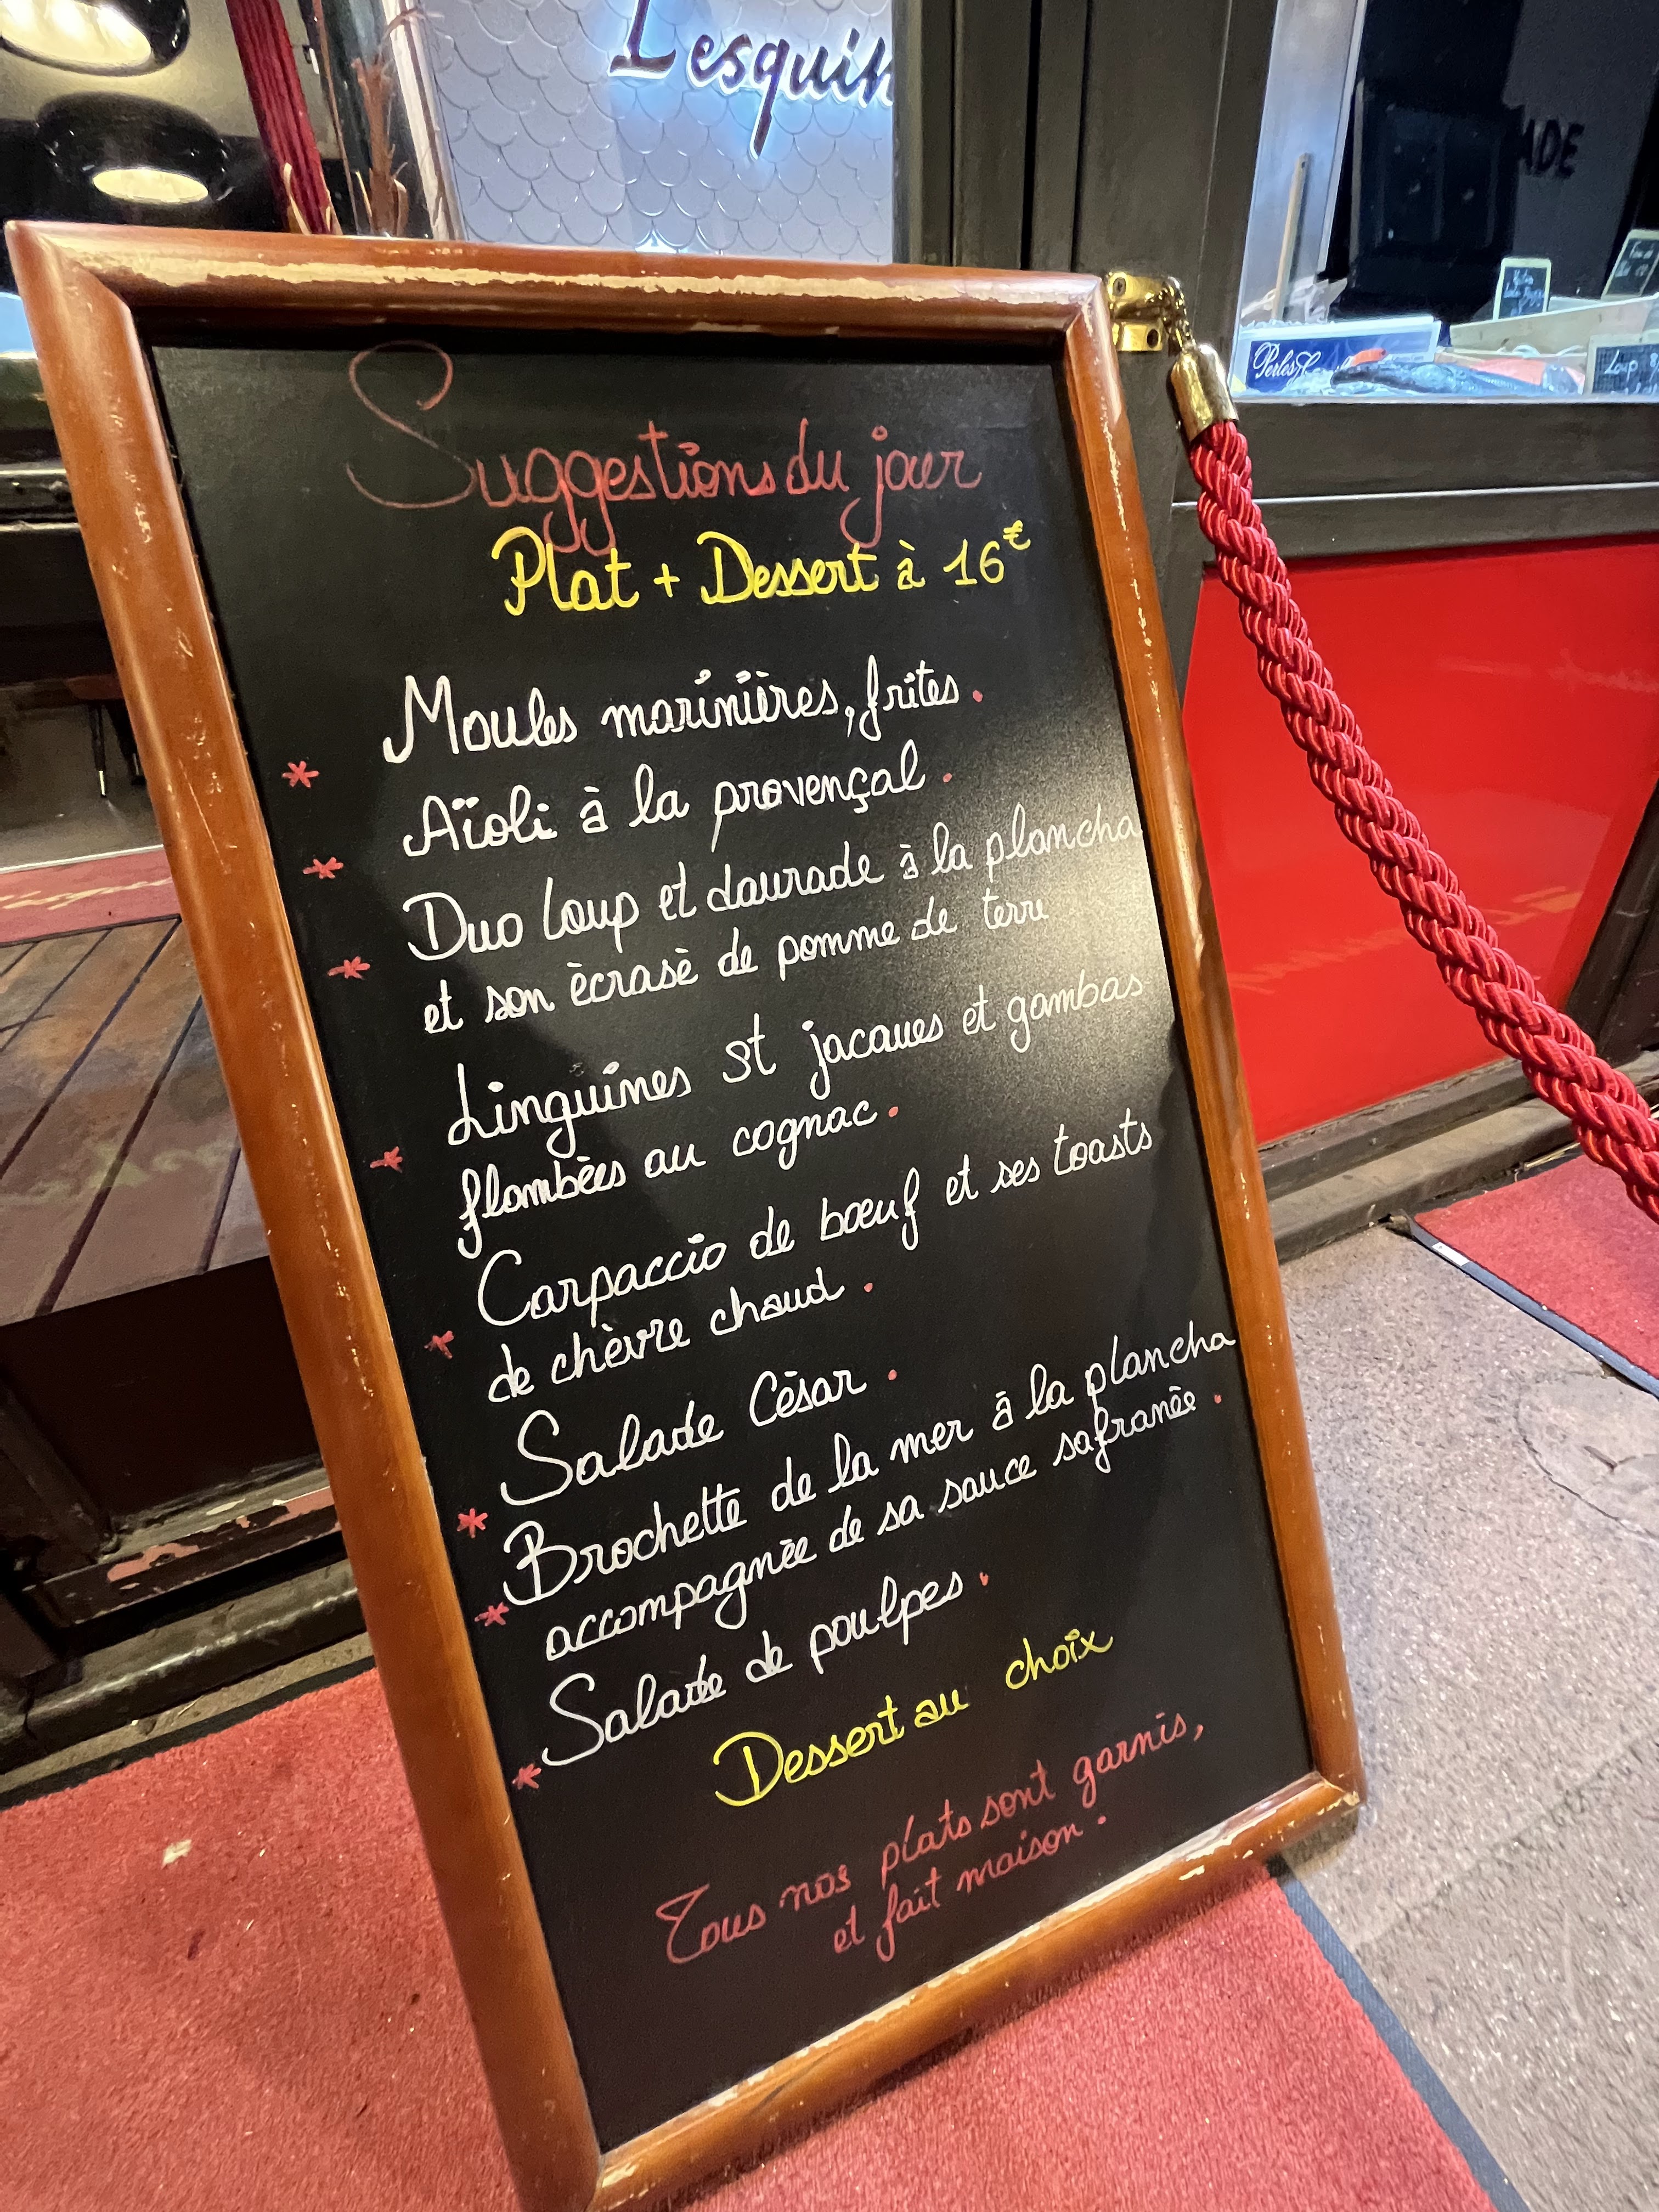 Lesquin
ADE
Perles
Loup
Suggestions du jour
Plat + Dessert à 16€
Moules marinières, frites.
* Aïoli à la provençal.
* Duo loup et daurade à la plancha
* et son ècrasè de pomme de terre
Linguines st jacques et gambas
* flambèes au cognac.
Carpaccio de bœuf et ses toasts
* de chèvre chaud.
Salade Cèsar.
* Brochette de la mer à la plancha
* accompagnèe de sa sauce safranèe.
Salade de poulpes.
*
Dessert au choix
Tous nos plats sont garnis,
et fait maison.